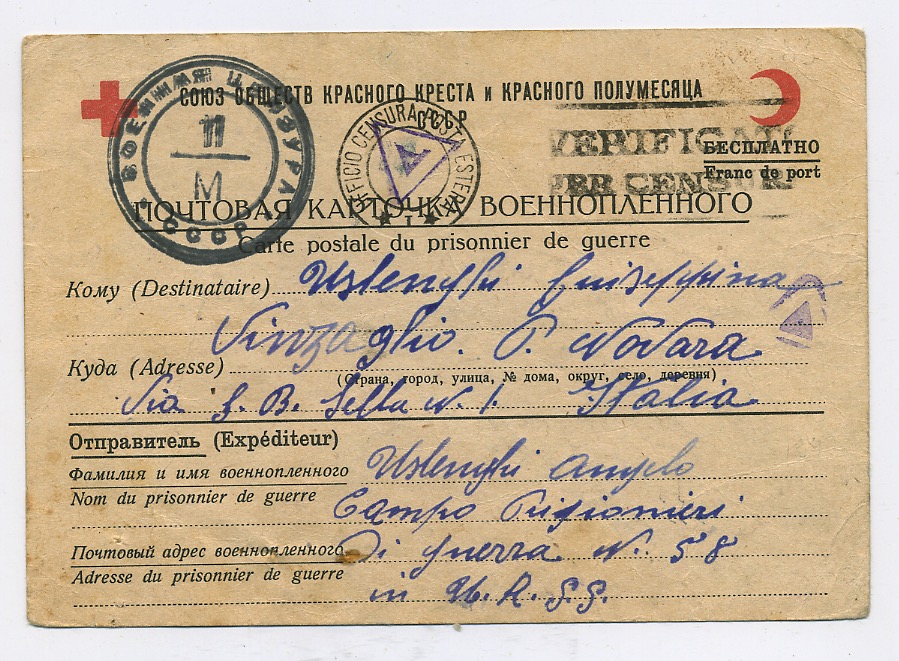 СОЮЗ ОБЩЕСТВ КРАСНОГО КРЕСТА и КРАСНОГО ПОЛУМЕСЯЦА
СССР
ВОЕННАЯ ЦЕНЗУРА
11
М
СССР
UFFICIO CENSURA POSTA ESTERA
1
VERIFICAT
PER CENSUR
БЕСПЛАТНО
Franc de port
ПОЧТОВАЯ КАРТОЧКА ВОЕННОПЛЕННОГО
Carte postale du prisonnier de guerre
Кому (Destinataire) Uslenghi Guiseppina
Vinzaglio. P. Novara
Куда (Adresse)
(Страна, город, улица, № дома, округ, село, деревня)
Via G. B. Sella N. 1. Italia
Отправитель (Expéditeur)
Фамилия и имя военнопленного Uslenghi Angelo
Nom du prisonnier de guerre Campo Prigionieri
Почтовый адрес военнопленного Di guerra N. 58
Adresse du prisonnier de guerre in U.R.S.S.